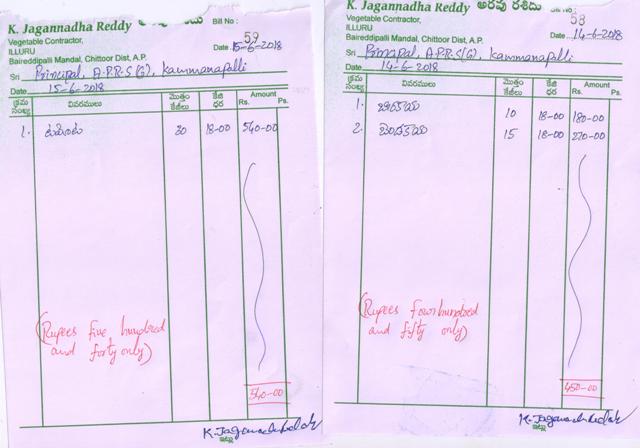 K. Jagannadha Reddy
Bill No :
59
Vegetable Contractor,
ILLURU
Date 15-6-2018
Baireddipalli Mandal, Chittoor Dist, A.P.
Sri Principal, A.P.R.S (G), Kammanapalli
Date 15-6-2018
క్రమ సంఖ్య వివరములు మొత్తం కేజీలు కేజి ధర Amount Rs. Ps.
1. టమోట 30 18-00 540-00
(Rupees five hundred
and forty only)
540-00
K. Jagannadha Reddy
K. Jagannadha Reddy అరవు రశీదు
Bill No :
58
Vegetable Contractor,
ILLURU
Date 14-6-2018
Baireddipalli Mandal, Chittoor Dist, A.P.
Sri Principal, A.P.R.S (G), Kammanapalli
Date 14-6-2018
క్రమ సంఖ్య వివరములు మొత్తం కేజీలు కేజి ధర Amount Rs. Ps.
1. 10 18-00 180-00
2. బెండకాయ 15 18-00 270-00
(Rupees four hundred
and fifty only)
450-00
K. Jagannadha Reddy